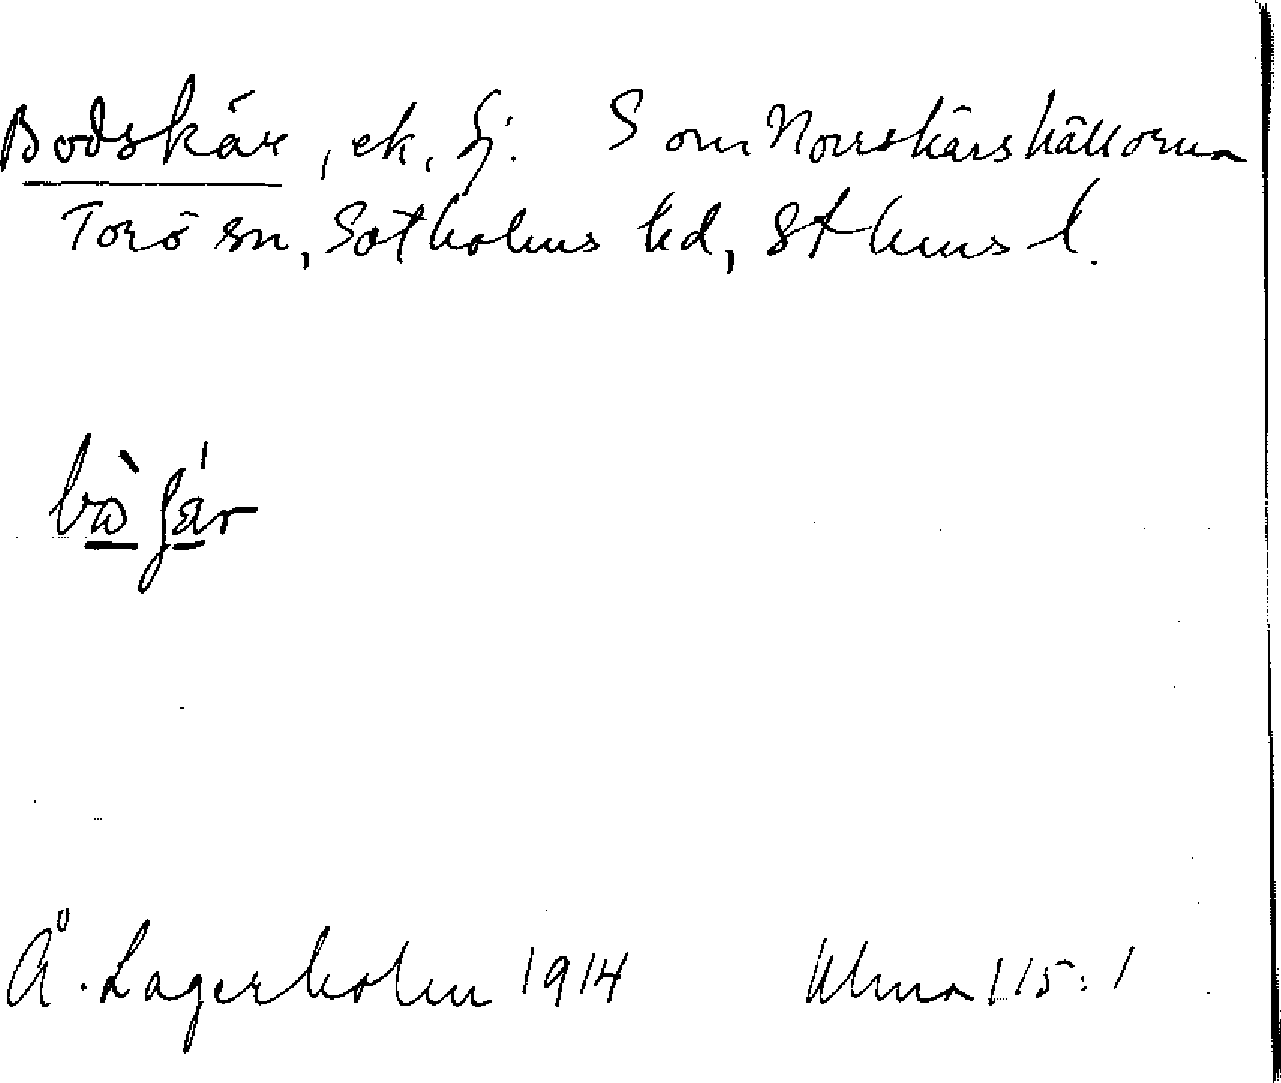 Bodskär, ek. Sj. S om Norrskärshällorna
Torö sn, Sotholms hd, Sthlms l.
Å. Lagerholm 1914 Ulma 115:1